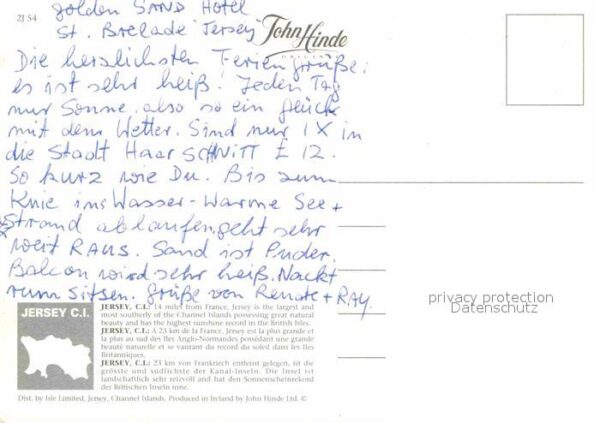 2J 54
golden SAND Hotel
St. Brelade Jersey
John Hinde
ORIGINAL
Die herzlichsten Feriengrüße.
es ist sehr heiß! Jeden Tag
nur Sonne. also so ein glück
mit dem Wetter. Sind nur 1 X in
die Stadt Haar SCHNITT £ 12.
So kurz wie Du. Bis zum
Knie ins Wasser - Warme See +
Strand ablaufen, geht sehr
weit RAUS. Sand ist Puder.
Balcon wird sehr heiß. Nackt
rum sitsen. grüße von Renate + RAY.
JERSEY C.I.
JERSEY, C.I.: 14 miles from France, Jersey is the largest and
most southerly of the Channel Islands possessing great natural
beauty and has the highest sunshine record in the British Isles.
JERSEY, C.I.: A 23 km de la France, Jersey est la plus grande et
la plus au sud des Iles Anglo-Normandes possédant une grande
beauté naturelle et se vantant du record du soleil dans les Iles
Britanniques.
JERSEY, C.I.: 23 km von Frankriech entfernt gelegen, ist die
grösste und südlichste der Kanal-Inseln. Die Insel ist
landschaftlich sehr reizvoll and hat den Sonnenscheinrekord
der Britischen Inseln inne.
Dist. by Isle Limited, Jersey, Channel Islands. Produced in Ireland by John Hinde Ltd. ©
privacy protection
Datenschutz